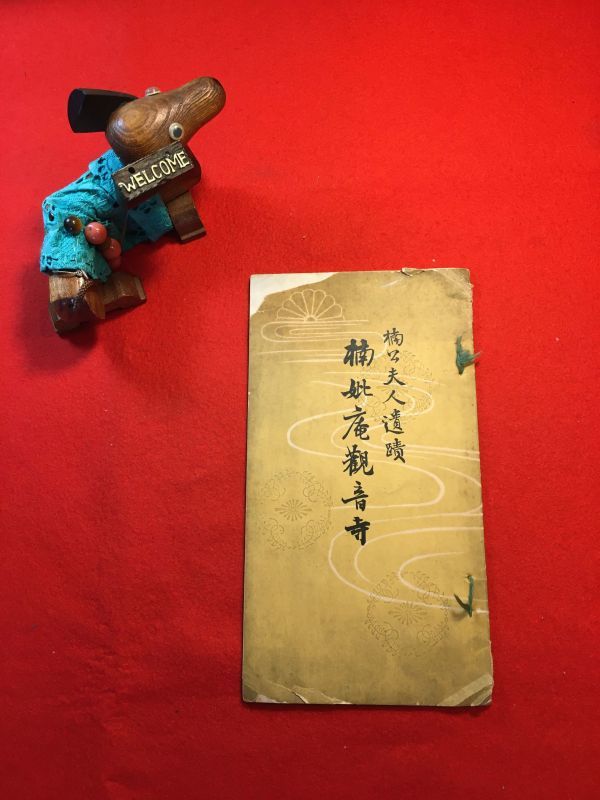 WELCOME
楠公夫人遺蹟
楠妣庵觀音寺